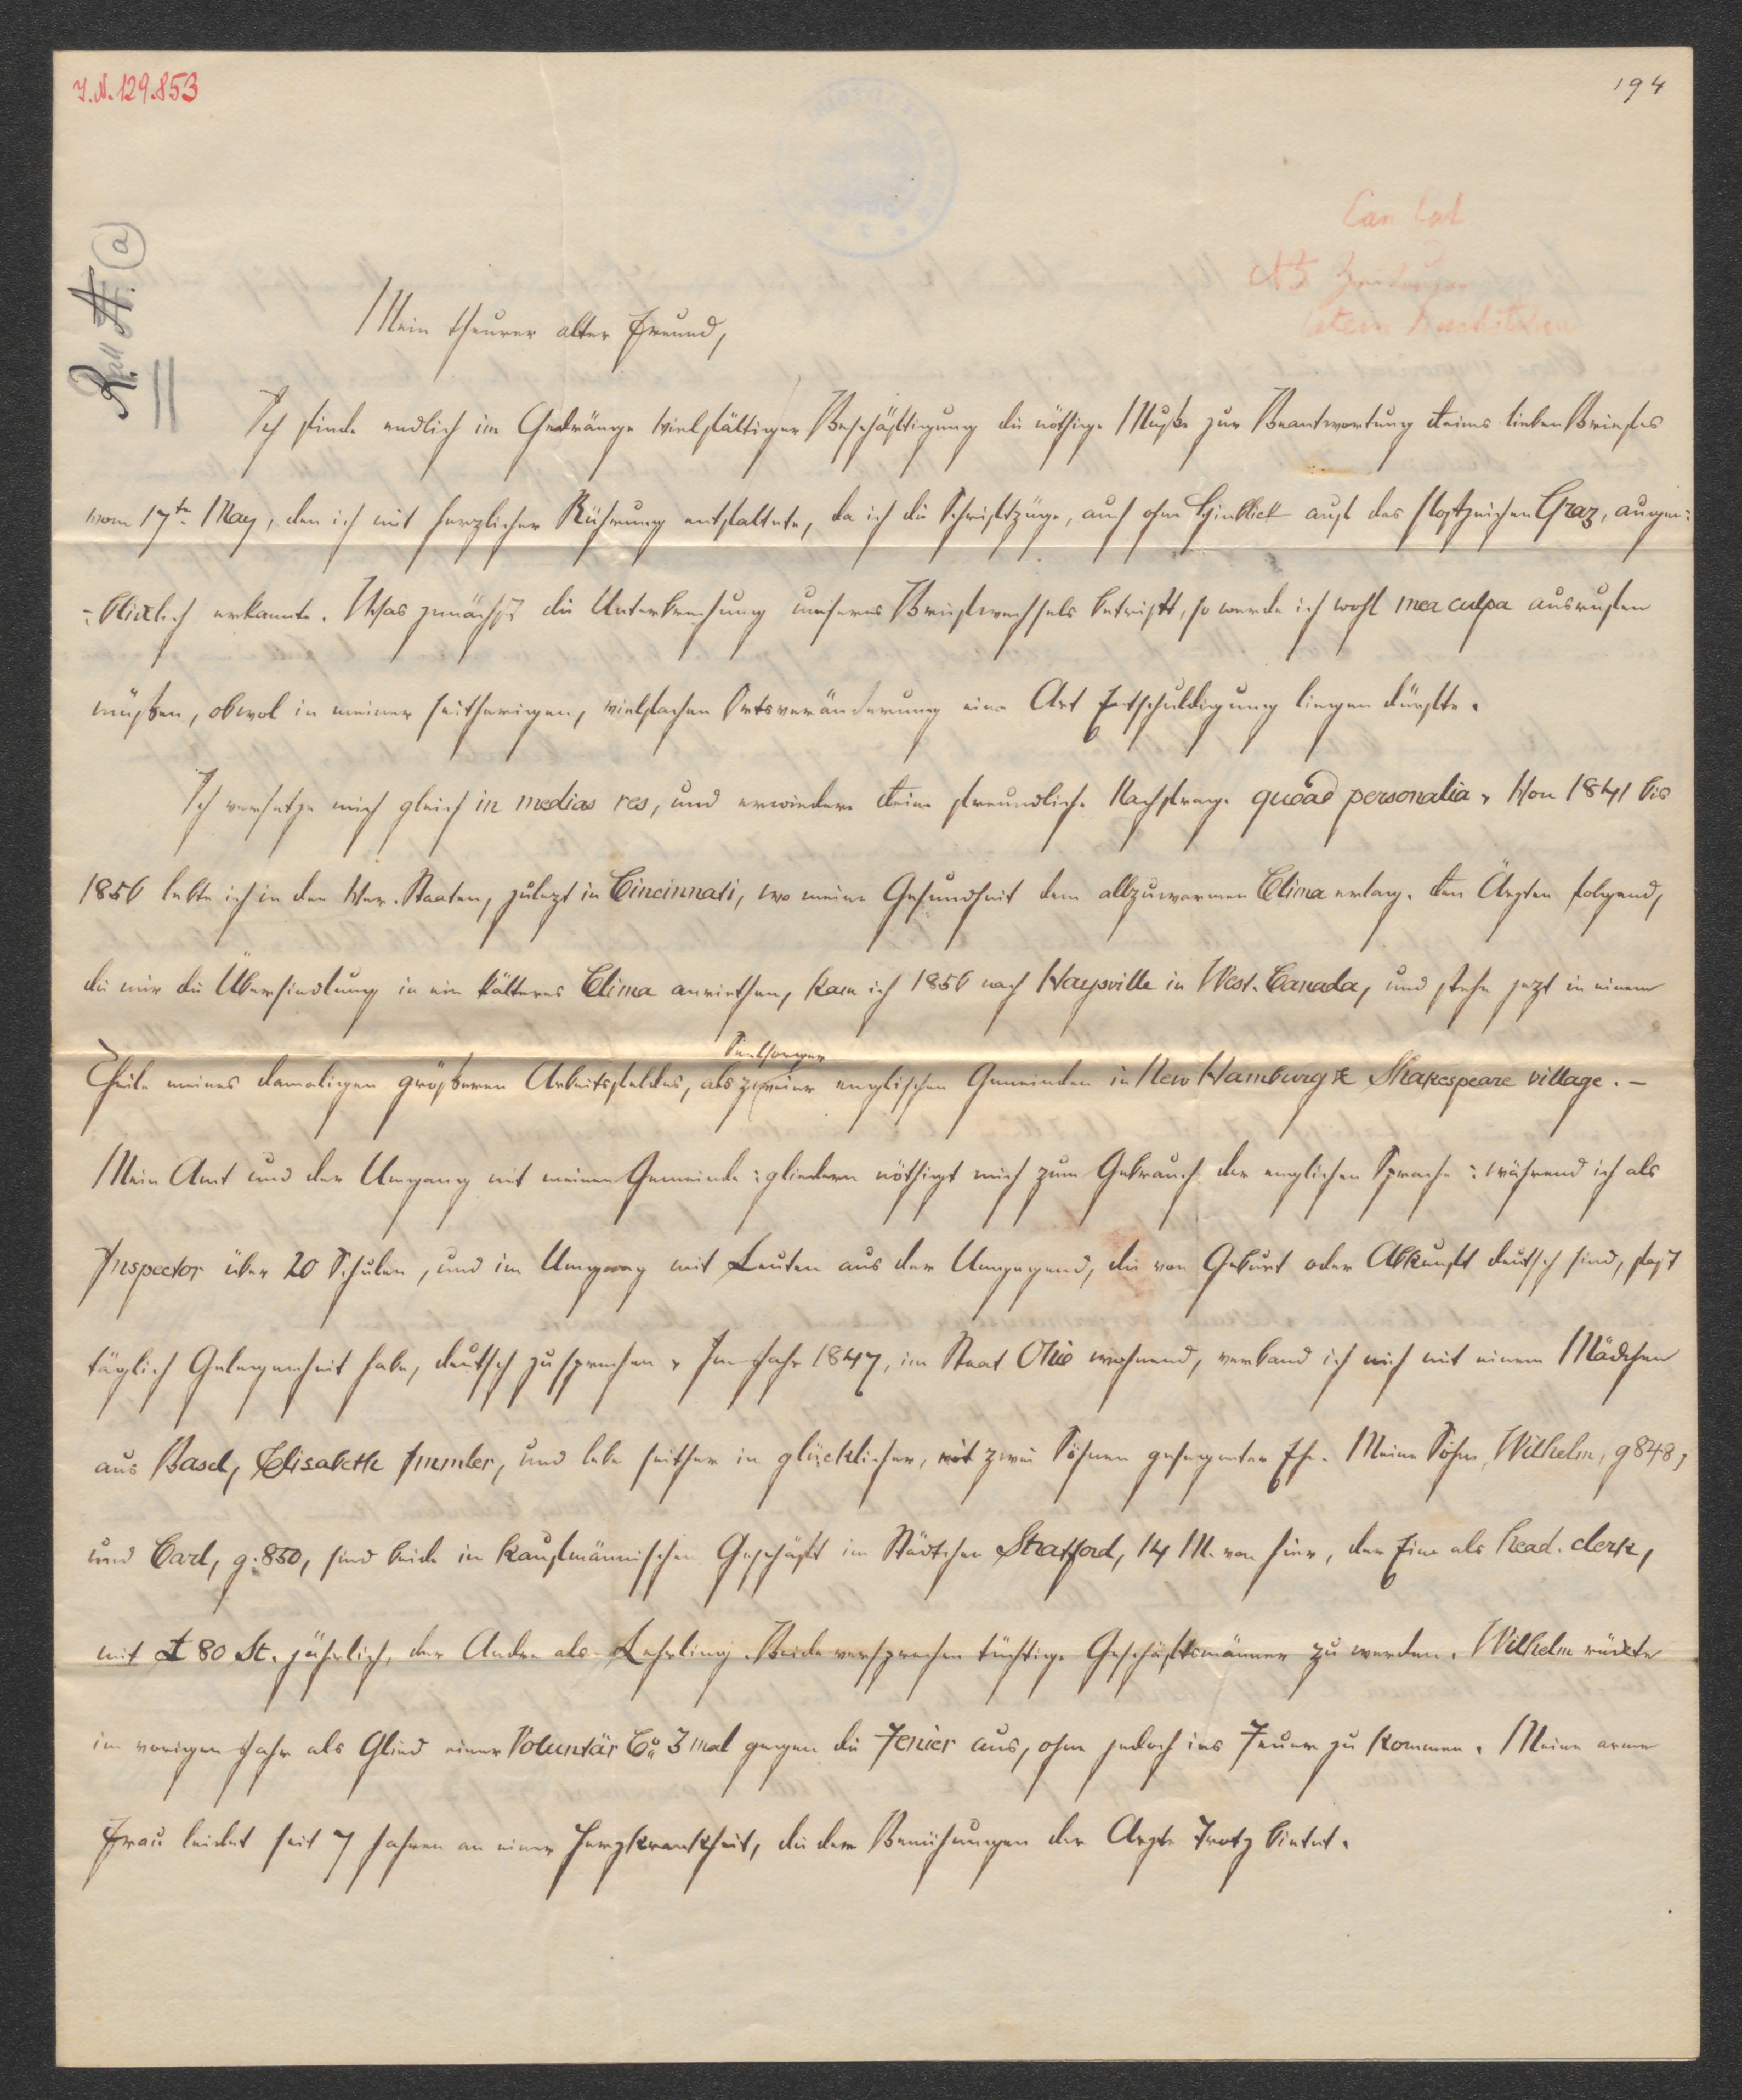 I.N. 129.853
194
Mein theurer alter Freund,
Ich finde endlich im Gedränge vielfältiger Beschäftigung die nöthige Muße zur Beantwortung Deines lieben Briefes
vom 17tn May, den ich mit herzlicher Rührung entfaltete, da ich die Schriftzüge, auch ohne Hinblick auf das Postzeichen Graz, augen:
:blicklich erkannte. Was zunächst die Unterbrechung unseres Briefwechsels betrifft, so werde ich wohl mea culpa ausrufen
müßen, obwol in meiner seitherigen, vielfachen Ortsveränderung eine Art Entschuldigung liegen dürfte.
Ich versetze mich gleich in medias res, und erwiedere Deine freundliche Nachfrage quoad personalia. Von 1841 bis
1856 lebte ich in den Ver. Staaten, zulezt in Cincinnati, wo meine Gesundheit dem allzuwarmen Clima erlag. Den Ärzten folgend,
die mir die Übersiedlung in ein kälteres Clima anriethen, kam ich 1856 nach Haysville in West-Canada, und stehe jezt in einem
Theile meines damaligen größeren Arbeitsfeldes, als Seelsorger zweier englischen Gemeinden in New Hamburg & Shakespeare village. –
Mein Amt und der Umgang mit meinen Gemeinde:gliedern nöthigt mich zum Gebrauch der englischen Sprache: während ich als
Inspector über 20 Schulen, und im Umgang mit Leuten aus der Umgegend, die von Geburt oder Abkunft deutsch sind, fast
täglich Gelegenheit habe, deutsch zu sprechen. Im Jahr 1847, im Staat Ohio wohnend, verband ich mich mit einem Mädchen
aus Basel, Elisabeth Immler, und lebe seither in glücklicher, mit zwei Söhnen gesegneter Ehe. Meine Söhne, Wilhelm, g848,
und Carl, g.850, sind beide in kaufmännischem Geschäft im Städtchen Stratford, 14 M. von hier, der Eine als head-clerk,
mit £ 80 St. jährlich, der Andre als Lehrling. Beide versprechen tüchtige Geschäftsmänner zu werden. Wilhelm rückte
im vorigen Jahr als Glied einer Voluntär Co. 3 mal gegen die Fenier aus, ohne jedoch ins Feuer zu kommen. Meine arme
Frau leidet seit 7 Jahren an einer Herzkrankheit, die den Bemühungen der Ärzte Trotz bietet.